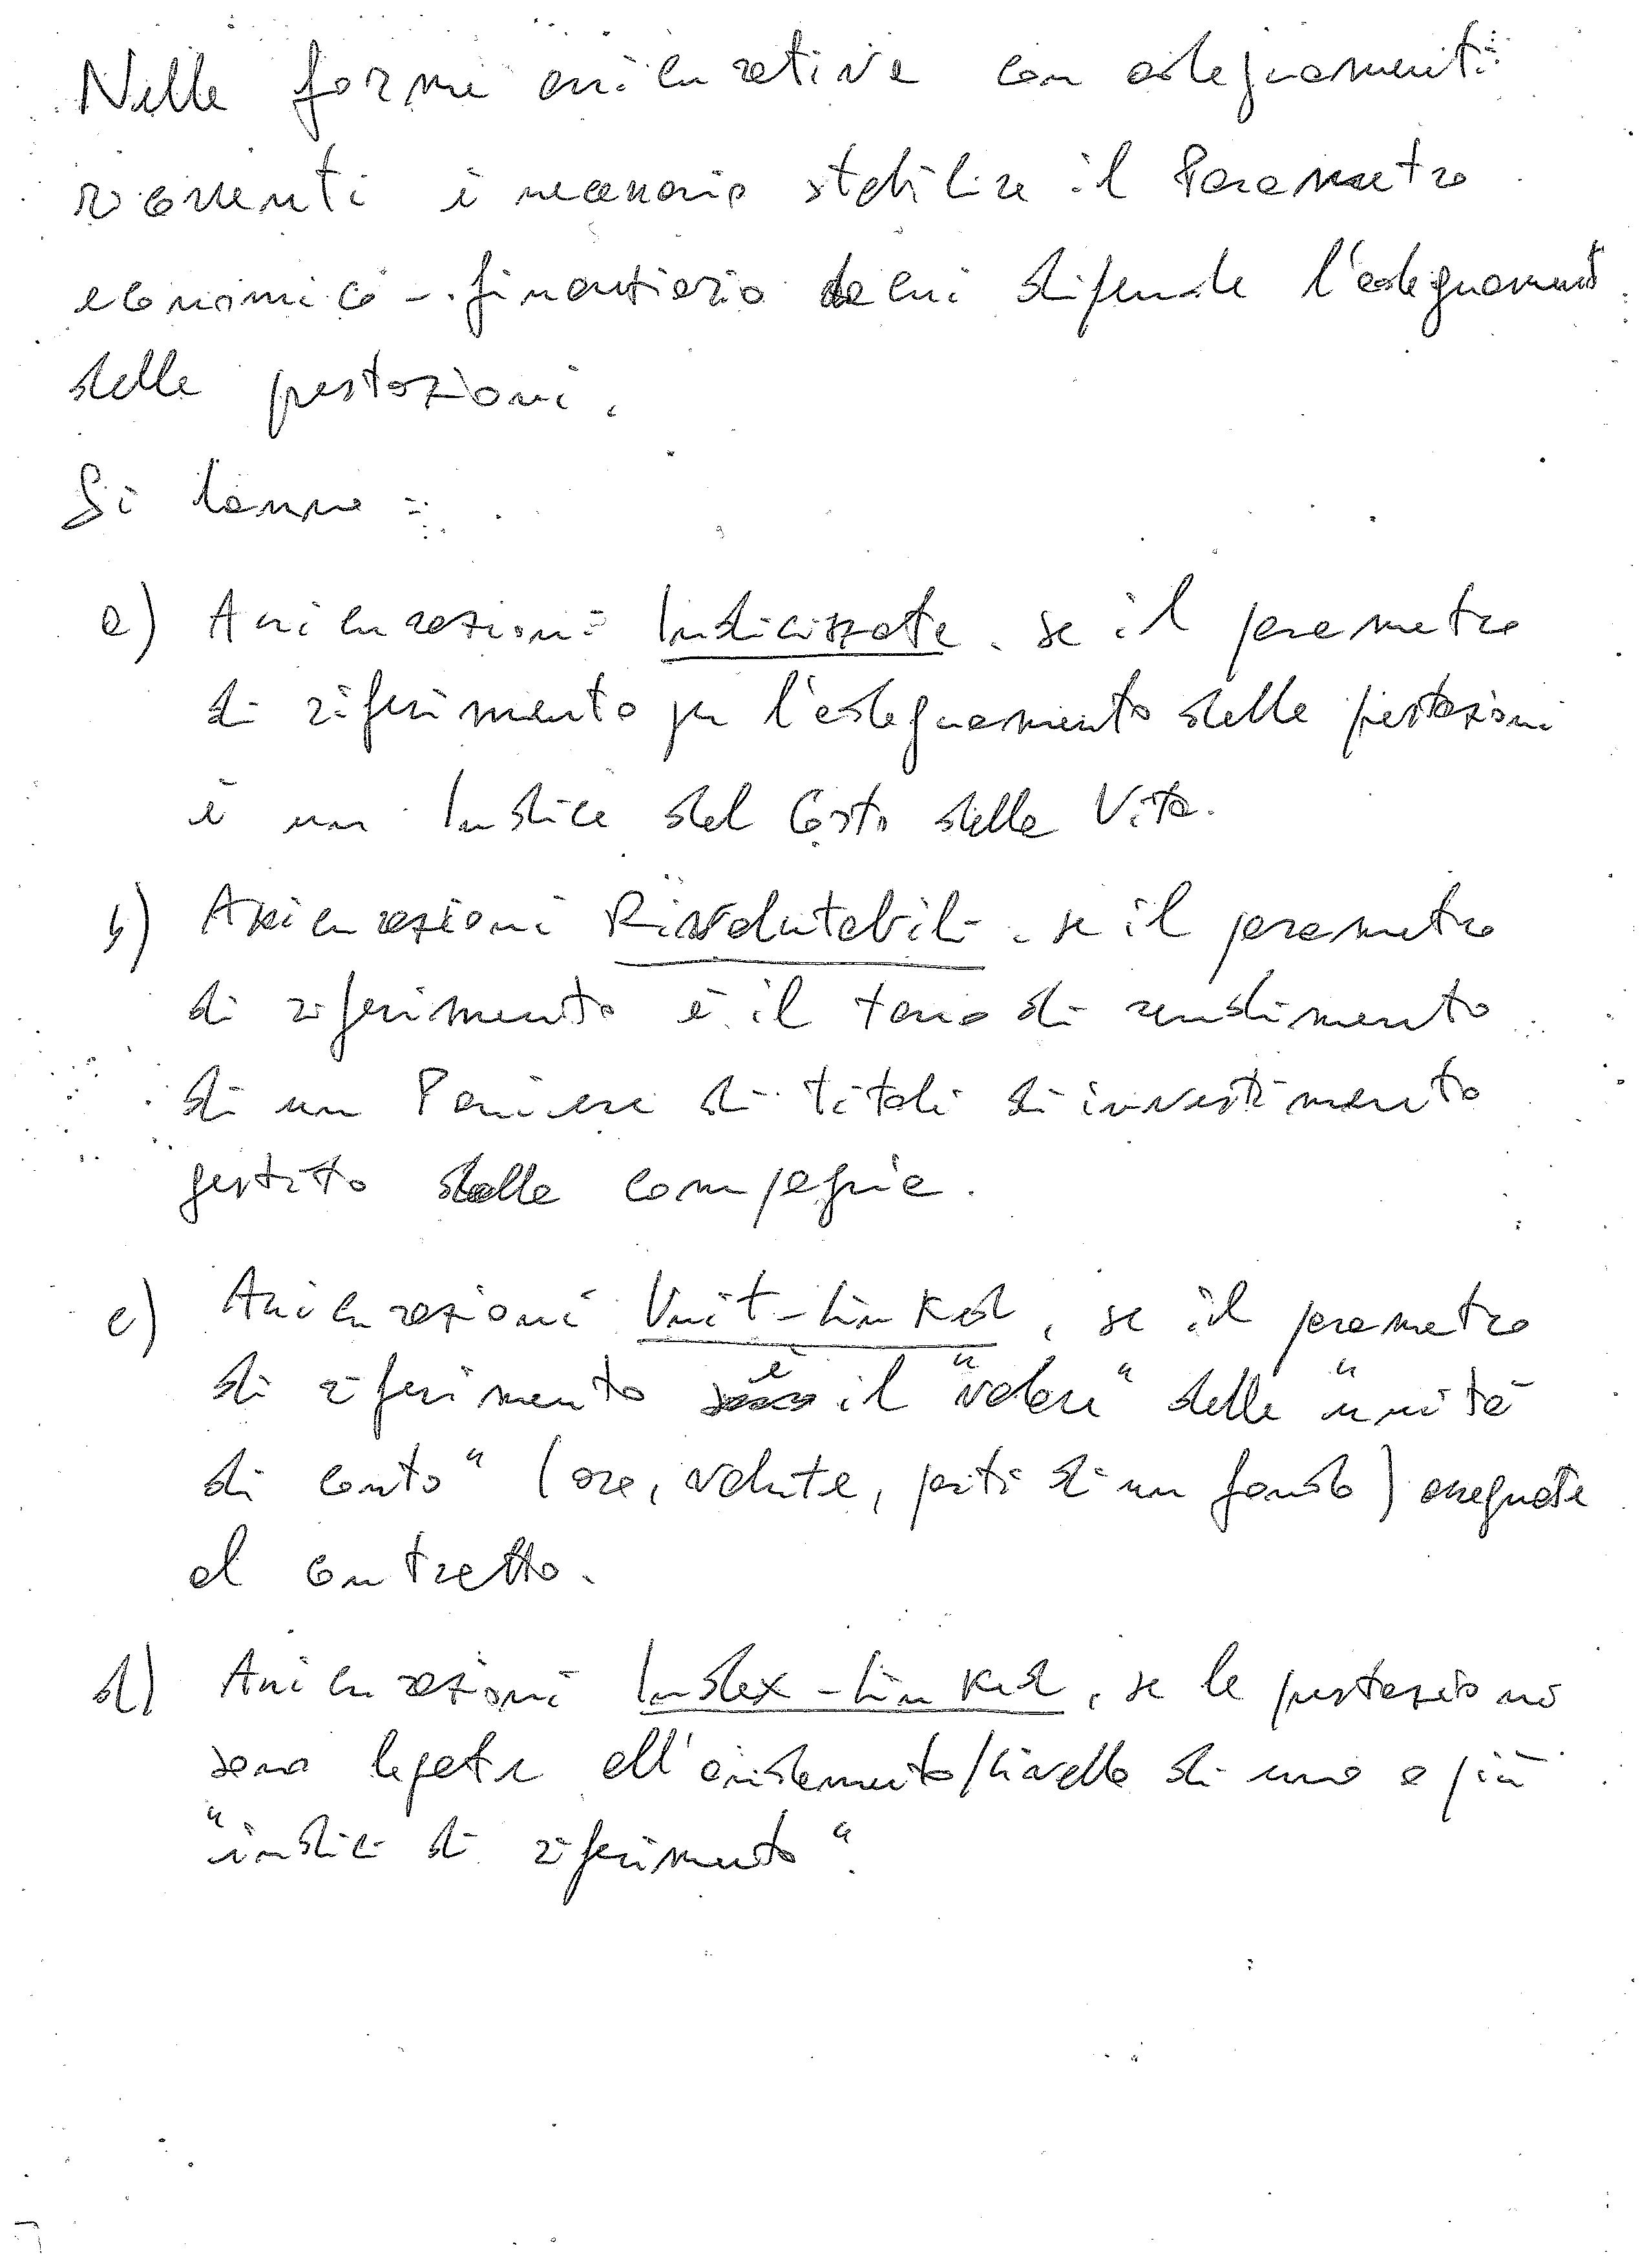 Nelle forme assicurative con adeguamenti
ricorrenti è necessario stabilire il Parametro
economico-finanziario da cui dipende l'adeguamento
delle prestazioni.
Si hanno:
a) Assicurazioni Indicizzate, se il parametro
di riferimento per l'adeguamento delle prestazioni
è un Indice del Costo della Vita.
b) Assicurazioni Rivalutabili, se il parametro
di riferimento è il tasso di rendimento
di un Paniere di titoli di investimento
gestito dalla compagnia.
c) Assicurazioni Unit-Linked, se il parametro
di riferimento è il "valore" delle "unità
di conto" (oro, valute, parti di un fondo) assegnate
al contratto.
d) Assicurazioni Index-Linked, se le prestazioni
sono legate all'andamento/livello di uno o più
"indici di riferimento".